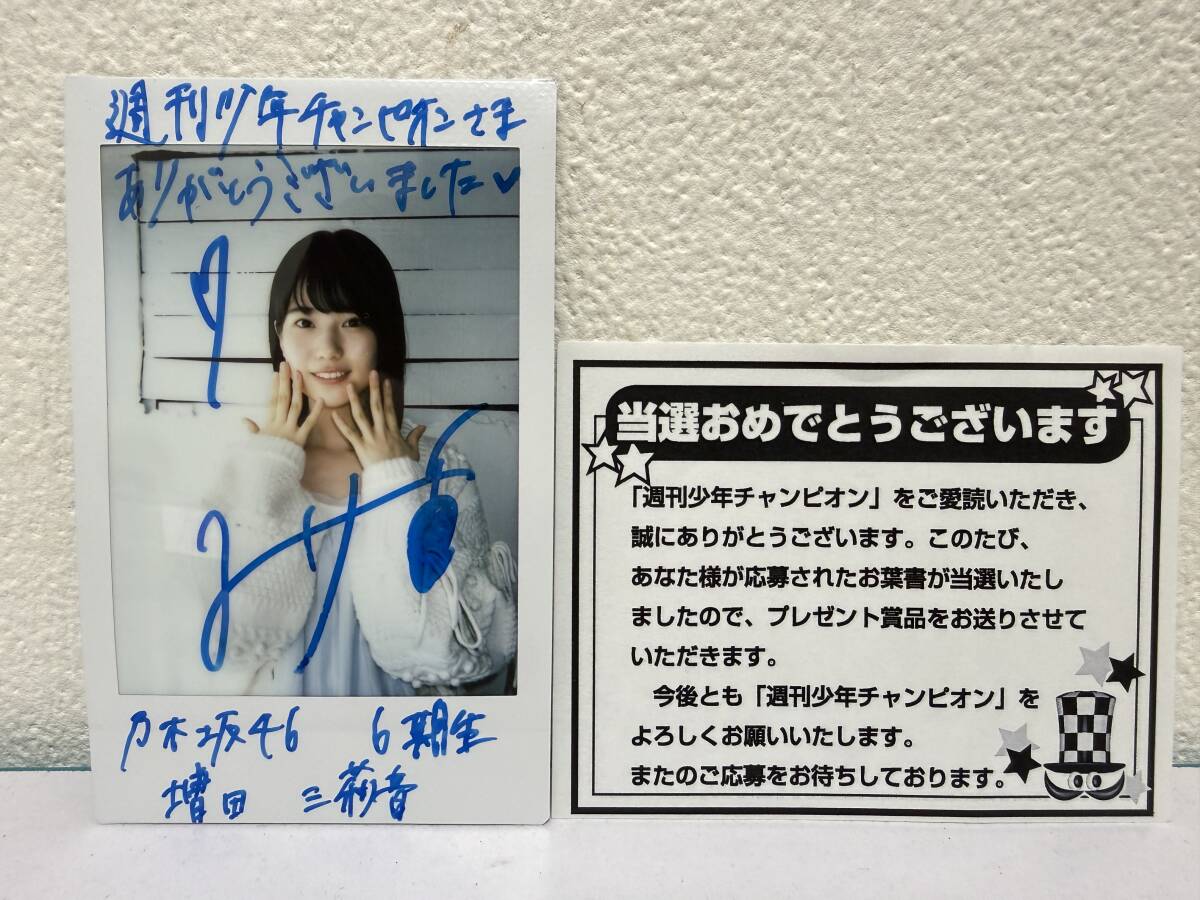 週刊少年チャンピオンさま
ありがとうございました♥
乃木坂46 6期生
増田 三莉音
当選おめでとうございます
「週刊少年チャンピオン」をご愛読いただき、
誠にありがとうございます。このたび、
あなた様が応募されたお葉書が当選いたし
ましたので、プレゼント賞品をお送りさせて
いただきます。
今後とも「週刊少年チャンピオン」を
よろしくお願いいたします。
またのご応募をお待ちしております。